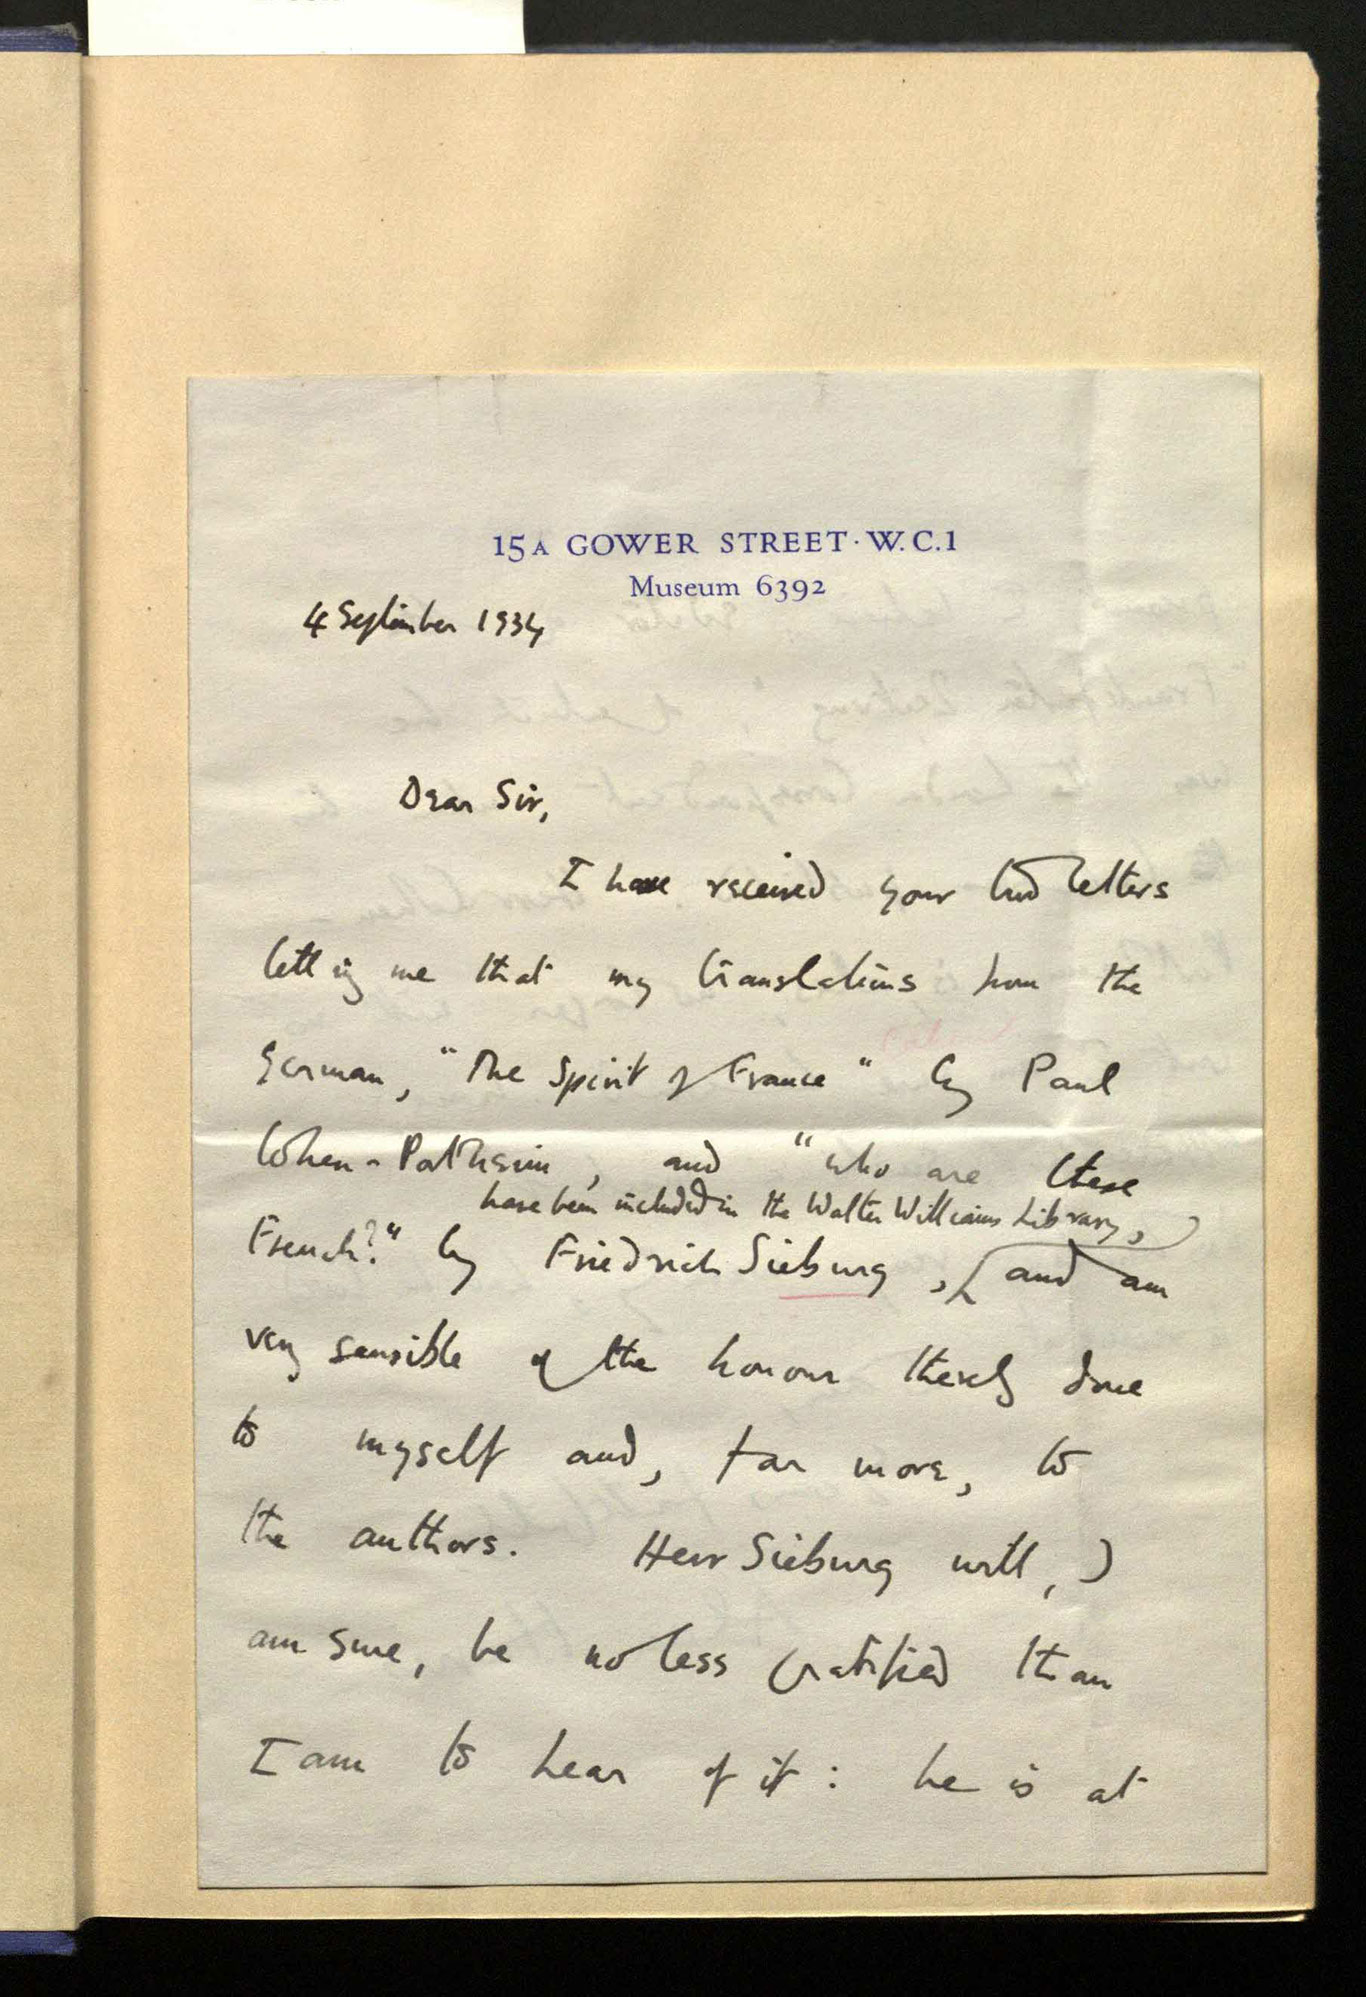 15A GOWER STREET · W.C.1
Museum 6392
4 September 1934
Dear Sir,
I have received your two letters
letting me that my translations from the
German, "The Spirit of France" by Paul
Cohen-Portheim, and "Who are these
have been included in the Walter Williams Library,
French?" by Friedrich Sieburg, and am
very sensible of the honour thereby done
to myself and, far more, to
the authors. Herr Sieburg will, I
am sure, be no less gratified than
I am to hear of it: he is at